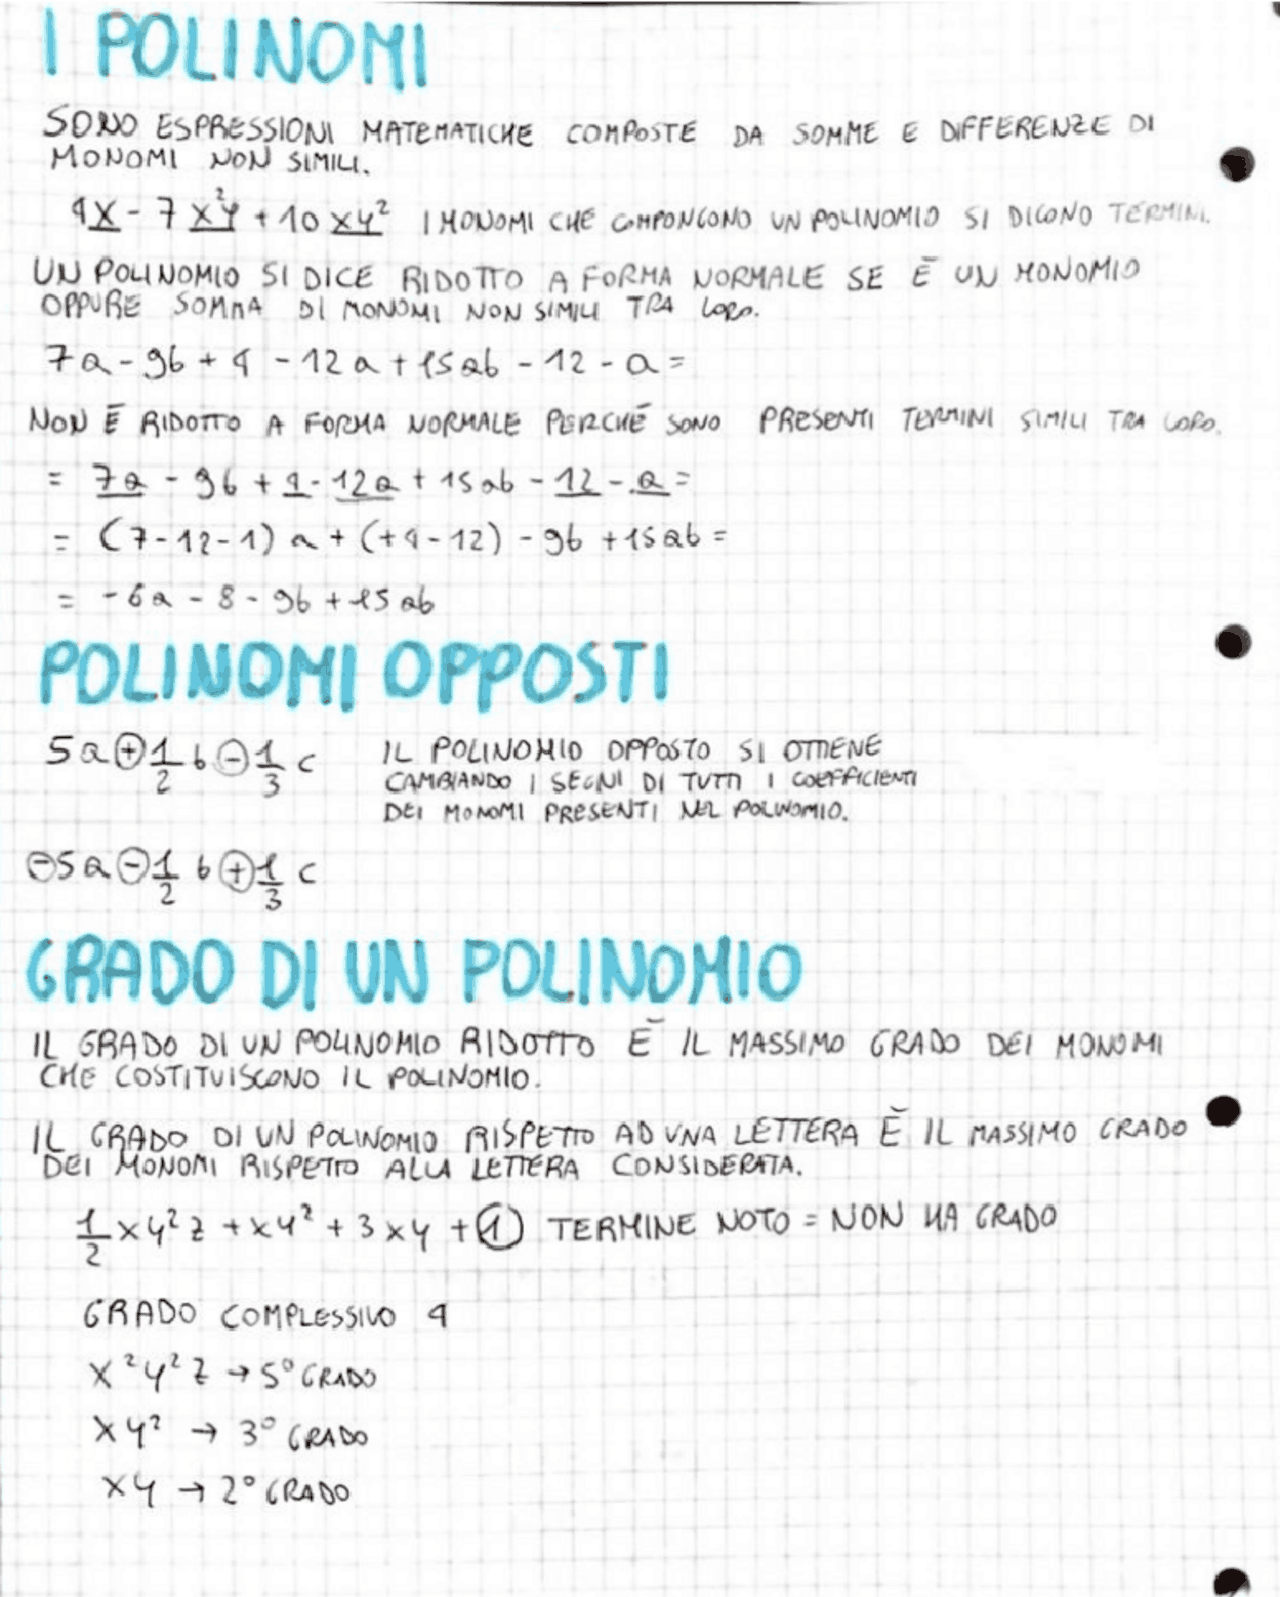 I POLINOMI
SONO ESPRESSIONI MATEMATICHE COMPOSTE DA SOMME E DIFFERENZE DI
MONOMI NON SIMILI.
4x - 7x²y + 10xy² I MONOMI CHE COMPONGONO UN POLINOMIO SI DICONO TERMINI.
UN POLINOMIO SI DICE RIDOTTO A FORMA NORMALE SE È UN MONOMIO
OPPURE SOMMA DI MONOMI NON SIMILI TRA LORO.
7a - 9b + 4 - 12a + 15ab - 12 - a =
NON È RIDOTTO A FORMA NORMALE PERCHÉ SONO PRESENTI TERMINI SIMILI TRA LORO.
= 7a - 9b + 4 - 12a + 15ab - 12 - a =
= (7-12-1) a + (+4-12) - 9b + 15ab =
= -6a - 8 - 9b + 15ab
POLINOMI OPPOSTI
5a + 1/2 b - 1/3 c IL POLINOMIO OPPOSTO SI OTTIENE
CAMBIANDO I SEGNI DI TUTTI I COEFFICIENTI
DEI MONOMI PRESENTI NEL POLINOMIO.
-5a - 1/2 b + 1/3 c
GRADO DI UN POLINOMIO
IL GRADO DI UN POLINOMIO RIDOTTO È IL MASSIMO GRADO DEI MONOMI
CHE COSTITUISCONO IL POLINOMIO.
IL GRADO DI UN POLINOMIO RISPETTO AD UNA LETTERA È IL MASSIMO GRADO
DEI MONOMI RISPETTO ALLA LETTERA CONSIDERATA.
1/2 xy²z + xy² + 3xy + 1 TERMINE NOTO = NON HA GRADO
GRADO COMPLESSIVO 4
x²y²z → 5° GRADO
xy² → 3° GRADO
xy → 2° GRADO